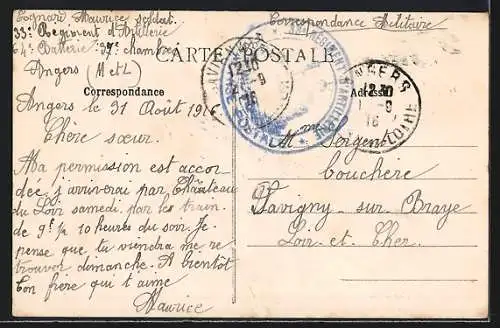 Lognard Maurice soldat
33e Regiment d'Artillerie
64e Batterie 39e chambre
Angers (M et L)
Correspondance Militaire
CARTE POSTALE
Correspondance
Adresse
Angers le 31 Août 1916
Chère sœur.
Ma permission est accor
dée j'arriverai par Château
du Loir samedi par les train
de 9h 1/2 10 heures du soir. Je
pense que tu viendra me re
trouver dimanche. A bientôt
Ton frère qui t'aime
Maurice
Sergent
bouchère
Savigny-sur-Braye
Loir-et-Cher
ANGERS
12-30
16
12-30
-9
16
POSTAL